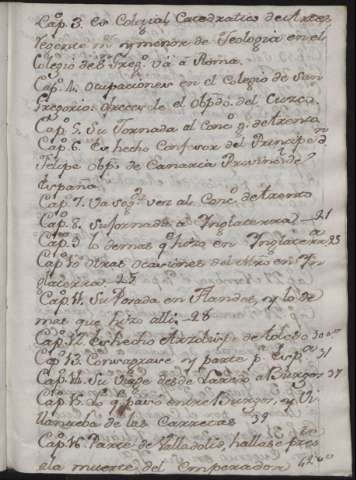 Cap.º 3. Es Colegial Catedratico de Artes,
Regente m.r y menor de Teologia en el
Colegio de S.n Greg.º va á Roma.
Cap.º 4. ocupaciones en el Colegio de San
Gregorio ofrecesele el Obpdo. del Cuzco.
Cap.º 5. Su Jornada al Conc.º de Trento
Cap.º 6. Es hecho Confesor del Principe D.n
Felipe obp.º de Canaria Provincl. de
España.
Cap.º 7. Va seg.da vez al Conc.º de Trento
Cap.º 8. Su Jornada á Inglaterra 21
Cap.º 9. lo demas q.e hizo en Inglaterra 23
Cap.º 10. otras ocasiones del Mro en In
glaterra 25
Cap.º 11. Su Parada en Flandes, y lo de
mas que hizo alli. 28
Cap.º 12. Es hecho Arzobispo de Toledo 30
Cap.º 13. Consagrase y parte p.a Esp.a 31
Cap.º 14. Su Viage desde Laredo á Burgos. 37
Cap.º 15. Lo q.e pasó entre Burgos, y Vi
llanueba de las Carretas 39
Cap.º 16. Parte de Valladolid, hallase pres.te
á la muerte del Emperador 42